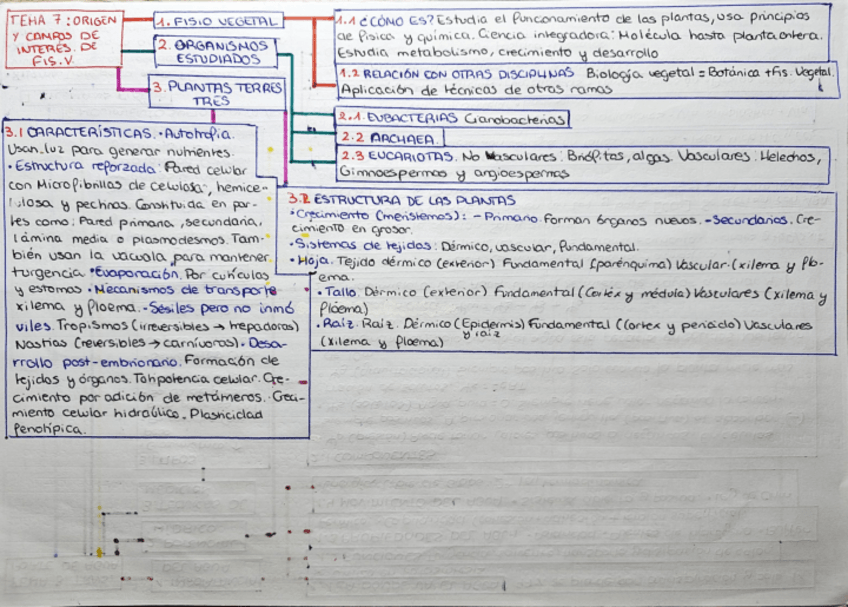 TEMA 7: ORIGEN
Y CAMPOS DE
INTERÉS. DE
FIS.V.
1. FISIO VEGETAL
2. ORGANISMOS
ESTUDIADOS
3. PLANTAS TERRES
TRES
1.1 ¿CÓMO ES? Estudia el funcionamiento de las plantas, usa principios
de física y química. Ciencia integradora: Molécula hasta planta entera.
Estudia metabolismo, crecimiento y desarrollo
1.2 RELACIÓN CON OTRAS DISCIPLINAS Biología vegetal = Botánica + Fis. Vegetal.
Aplicación de técnicas de otras ramas
2.1. EUBACTERIAS Cianobacterias
2.2 ARCHAEA.
2.3 EUCARIOTAS. No Vasculares: Briófitas, algas. Vasculares: Helechos,
Gimnoespermas y angioespermas
3.1 CARACTERÍSTICAS. • Autotrofia.
Usan luz para generar nutrientes.
• Estructura reforzada: Pared celular
con Microfibrillas de celulosa, hemice-
lulosa y pectinas. Constituida en par-
tes como: Pared primaria, secundaria,
lámina media o plasmodesmos. Tam-
bién usan la vacuola para mantener
turgencia • Evaporación. Por cutículas
y estomas • Mecanismos de transporte
xilema y floema. - Sésiles pero no inmó
viles. Tropismos (irreversibles → trepadoras)
Nastias (reversibles → carnívoras) • Desa-
rrollo post-embrionario. Formación de
tejidos y órganos. Totipotencia celular. Cre-
cimiento por adición de metámeros. Creci-
miento celular hidráulico. Plasticidad
fenotípica.
3.2 ESTRUCTURA DE LAS PLANTAS
• Crecimiento (meristemos): - Primario. Forman órganos nuevos. - Secundarios. Cre-
cimiento en grosor.
• Sistemas de tejidos: Dérmico, vascular, fundamental.
• Hoja. Tejido dérmico (exterior) Fundamental (parénquima) Vascular (xilema y flo-
ema.
• Tallo. Dérmico (exterior) Fundamental (Cortex y médula) Vasculares (xilema y
floema)
• Raíz. Raíz. Dérmico (Epidermis) Fundamental (Cortex y periciclo) Vasculares
y raíz
(xilema y floema)